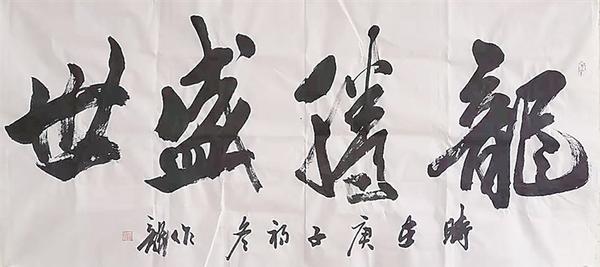 龍騰盛世
時在庚子初冬